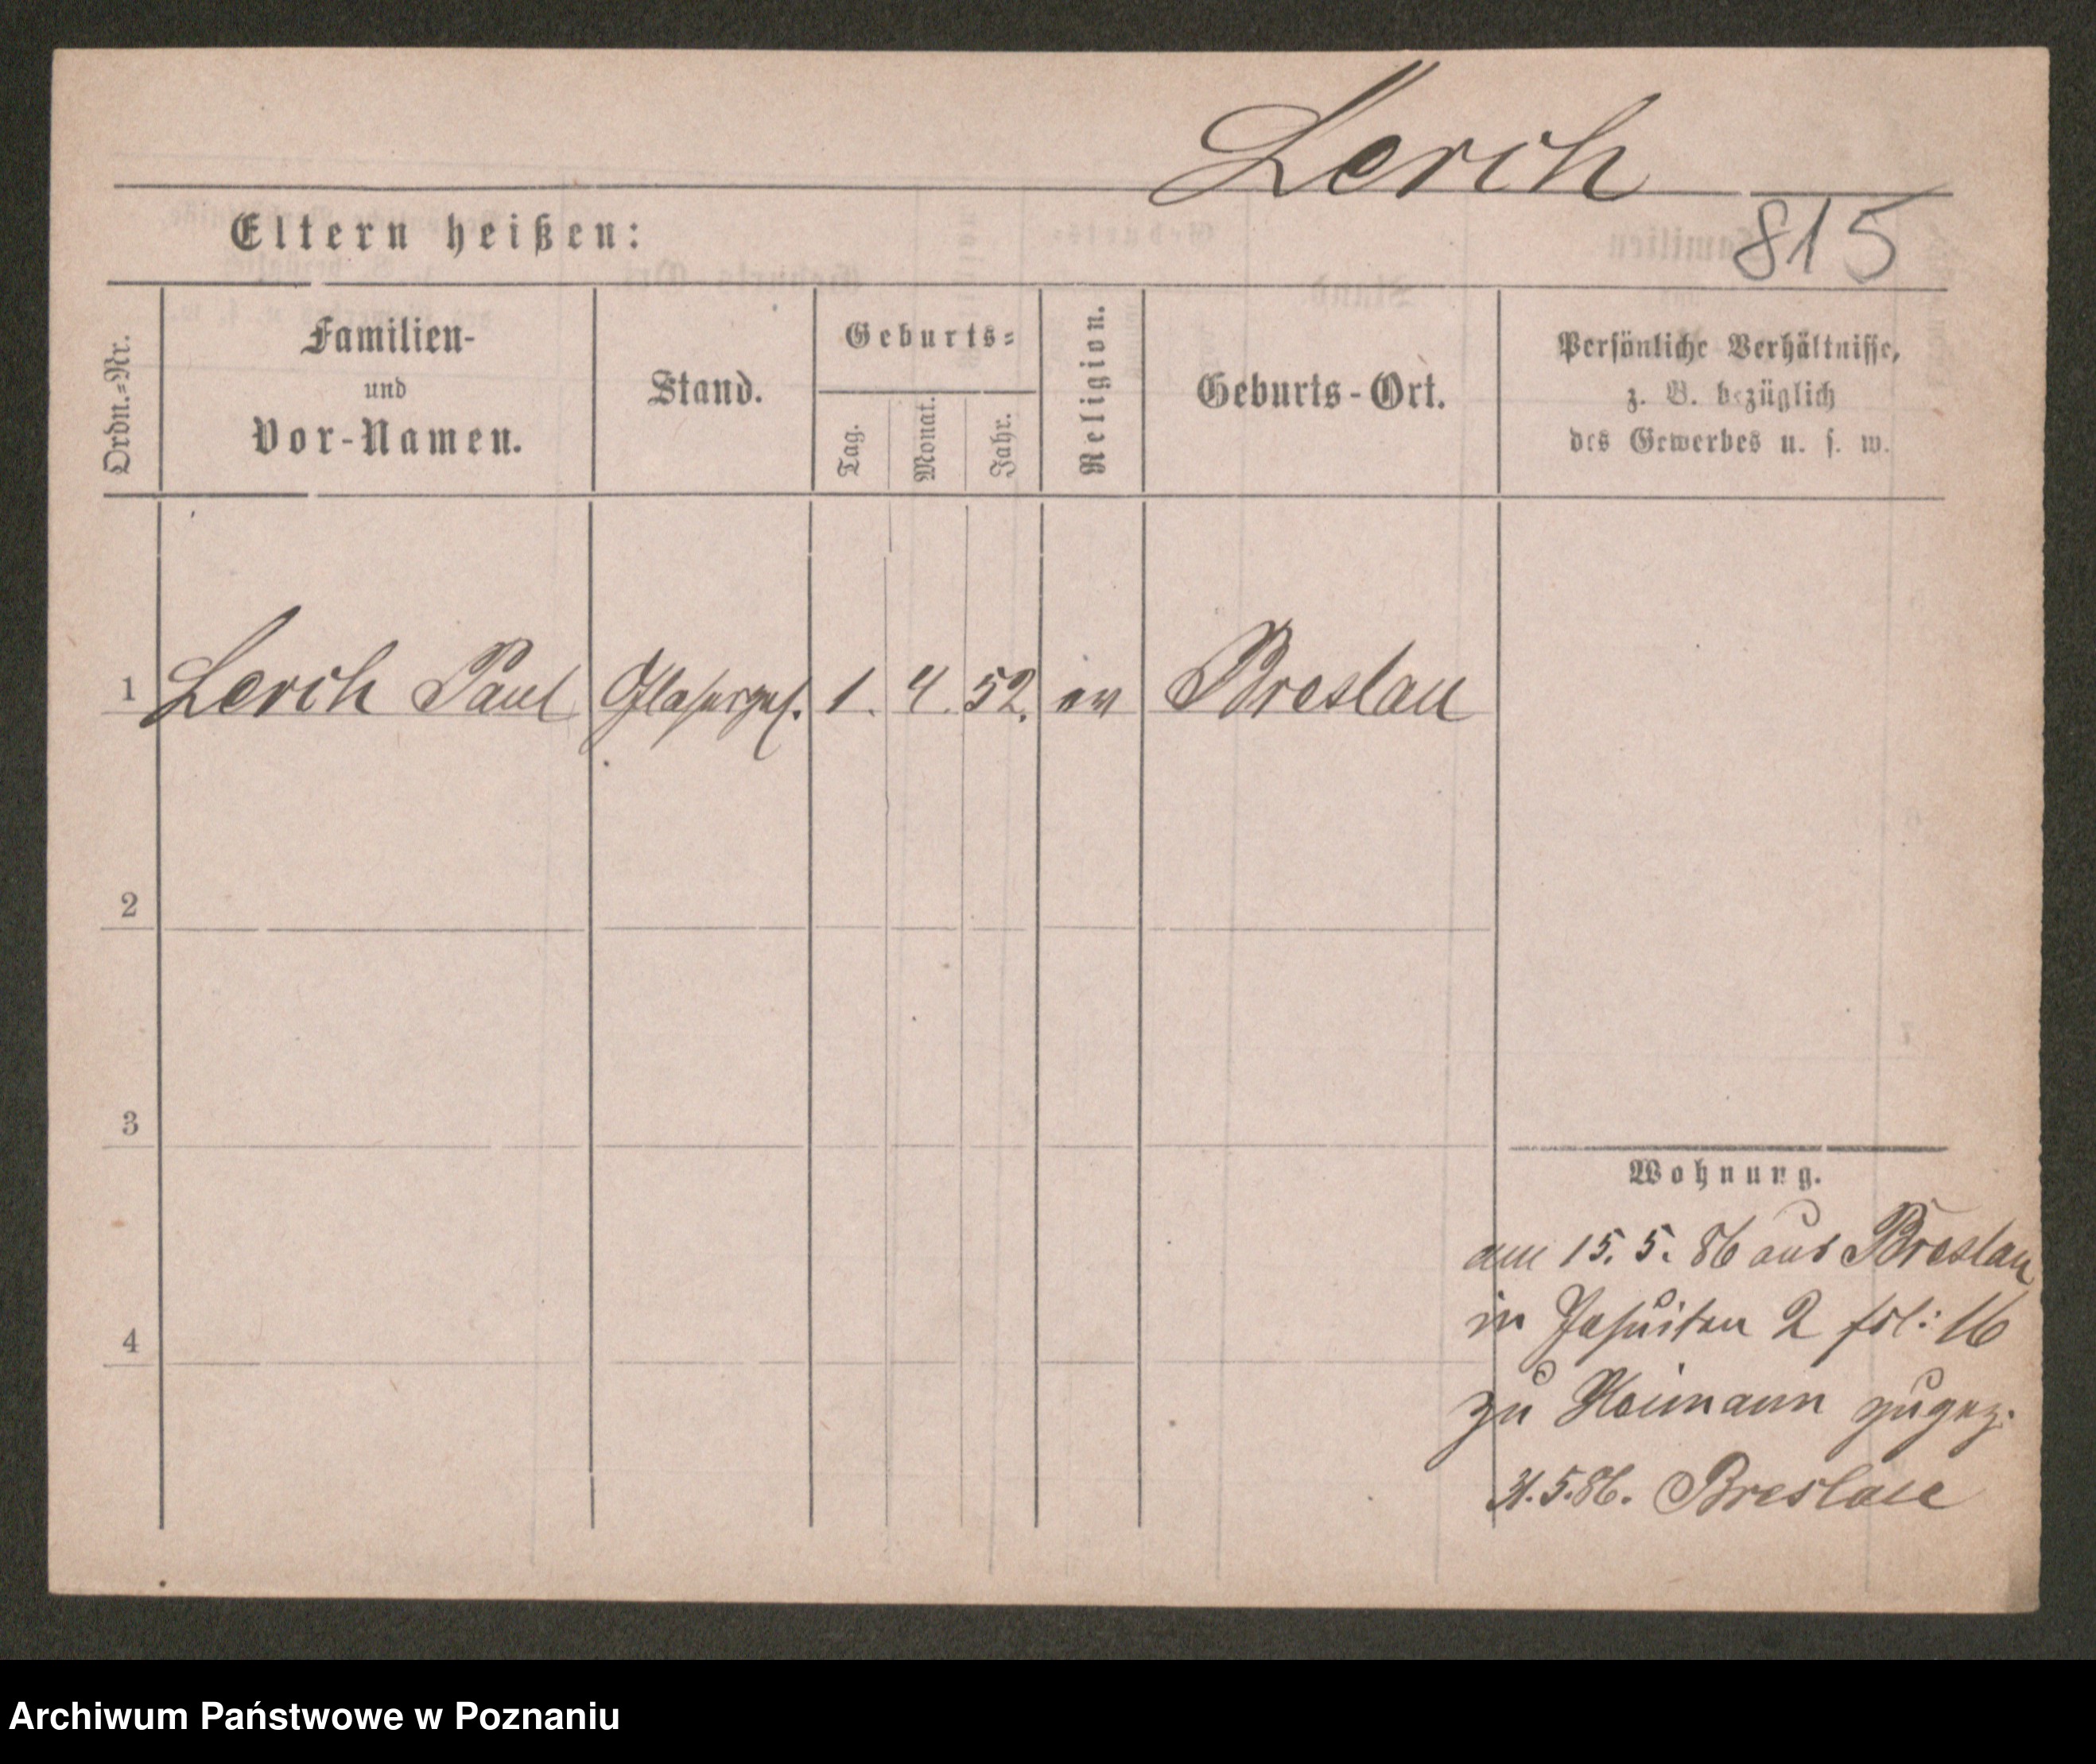 Lerch
815
Eltern heißen:
Ordn.=Nr.
Familien-
und
Vor-Namen.
Stand.
Geburts=
Tag.
Monat.
Jahr.
Religion.
Geburts-Ort.
Persönliche Verhältnisse,
z. B. bezüglich
des Gewerbes u. s. w.
1 Lerch Paul Glaserges. 1. 4. 52. ev Breslau
2
3
4
Wohnung.
am 15. 5. 86 aus Breslau
in Jesuiten 2 fol: 16
zu Heimann zugez.
31.5.86. Breslau
Archiwum Państwowe w Poznaniu